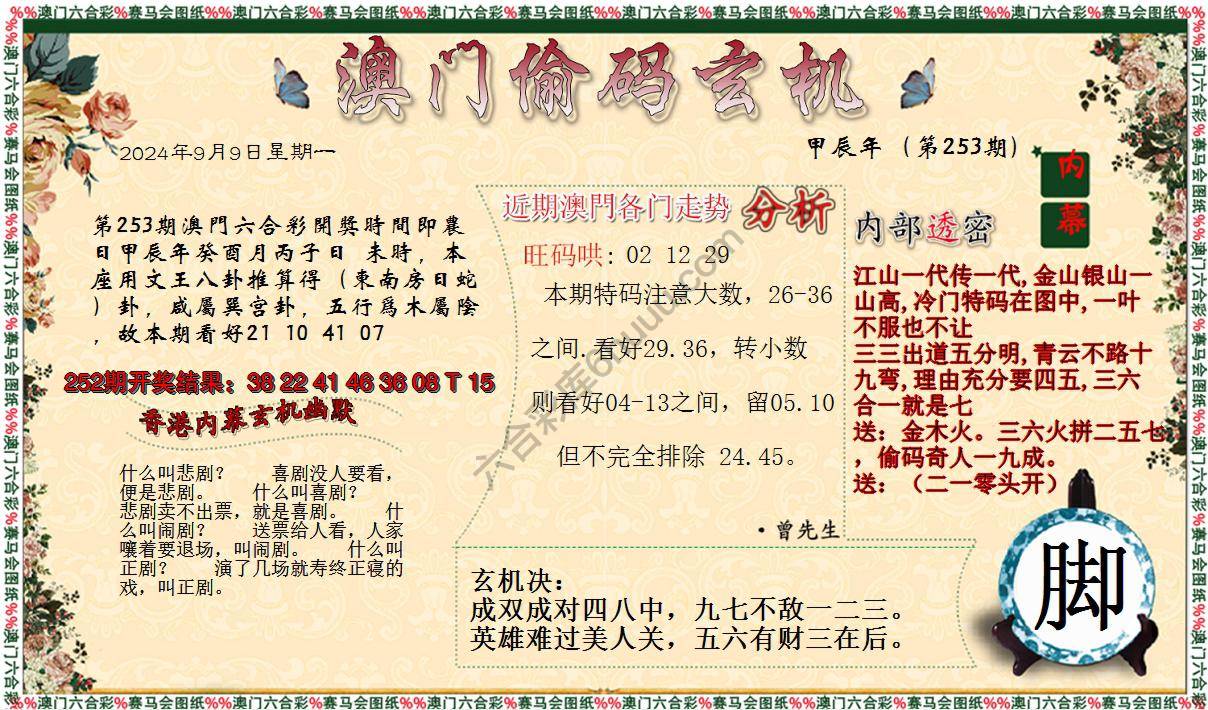 %%澳门六合彩%赛马会图纸%%澳门六合彩%赛马会图纸%%澳门六合彩%赛马会图纸%%澳门六合彩%赛马会图纸%%澳门六合彩%赛马会图纸%%澳门六合彩%赛马会图纸%%
澳门偷码玄机
2024年9月9日星期一
甲辰年（第253期）
内幕
第253期澳門六合彩開獎時間即農
日甲辰年癸酉月丙子日 未時，本
座用文王八卦推算得（東南房日蛇
）卦，咸屬巽宫卦，五行爲木屬陰
，故本期看好21 10 41 07
252期开奖结果：38 22 41 46 36 08 T 15
香港内幕玄机幽默
什么叫悲剧？ 喜剧没人要看，
便是悲剧。 什么叫喜剧？
悲剧卖不出票，就是喜剧。 什
么叫闹剧？ 送票给人看，人家
嚷着要退场，叫闹剧。 什么叫
正剧？ 演了几场就寿终正寝的
戏，叫正剧。
近期澳門各门走势 分析
旺码哄: 02 12 29
本期特码注意大数，26-36
之间.看好29.36，转小数
则看好04-13之间，留05.10
但不完全排除 24.45。
·曾先生
内部透密
江山一代传一代,金山银山一
山高,冷门特码在图中,一叶
不服也不让
三三出道五分明,青云不路十
九弯,理由充分要四五,三六
合一就是七
送：金木火。三六火拼二五七
，偷码奇人一九成。
送：（二一零头开）
玄机决：
成双成对四八中，九七不敌一二三。
英雄难过美人关，五六有财三在后。
脚
%%澳门六合彩%赛马会图纸%%澳门六合彩%赛马会图纸%%澳门六合彩%赛马会图纸%%澳门六合彩%赛马会图纸%%澳门六合彩%赛马会图纸%%澳门六合彩%赛马会图纸%%